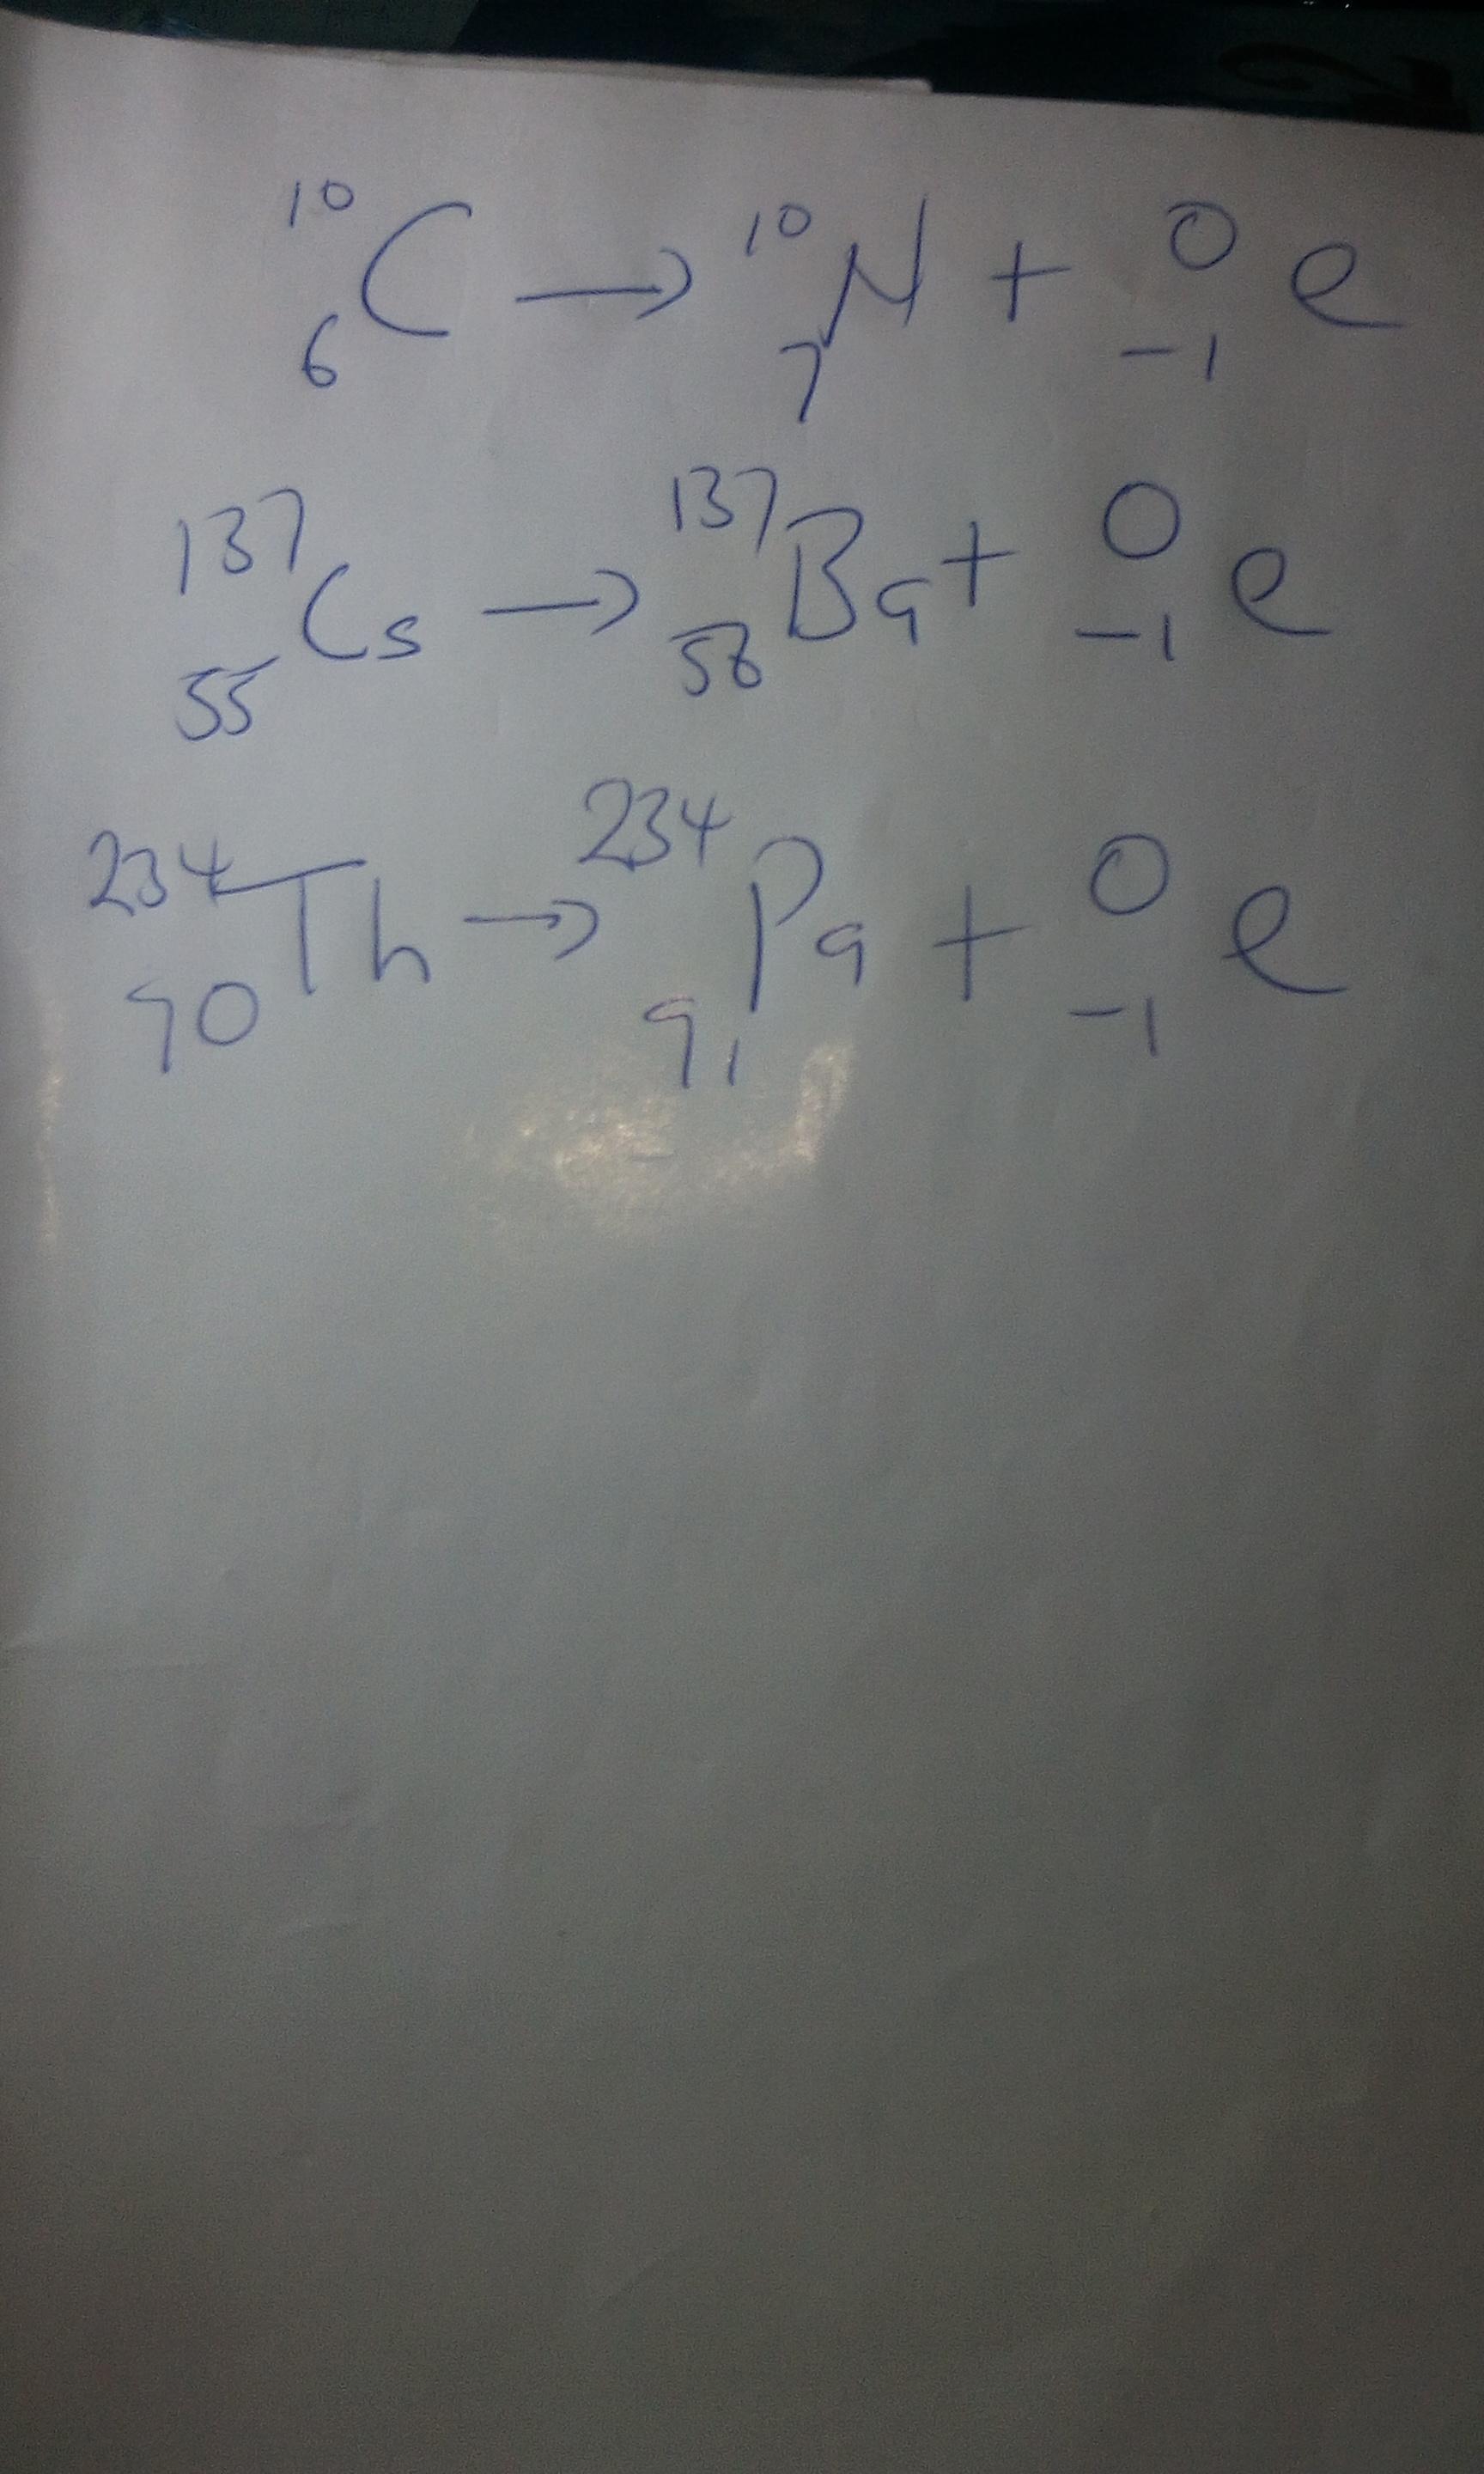 ¹⁰₆C → ¹⁰₇N + ⁰₋₁e
¹³⁷₅₅Cs → ¹³⁷₅₆Ba + ⁰₋₁e
²³⁴₉₀Th → ²³⁴₉₁Pa + ⁰₋₁e